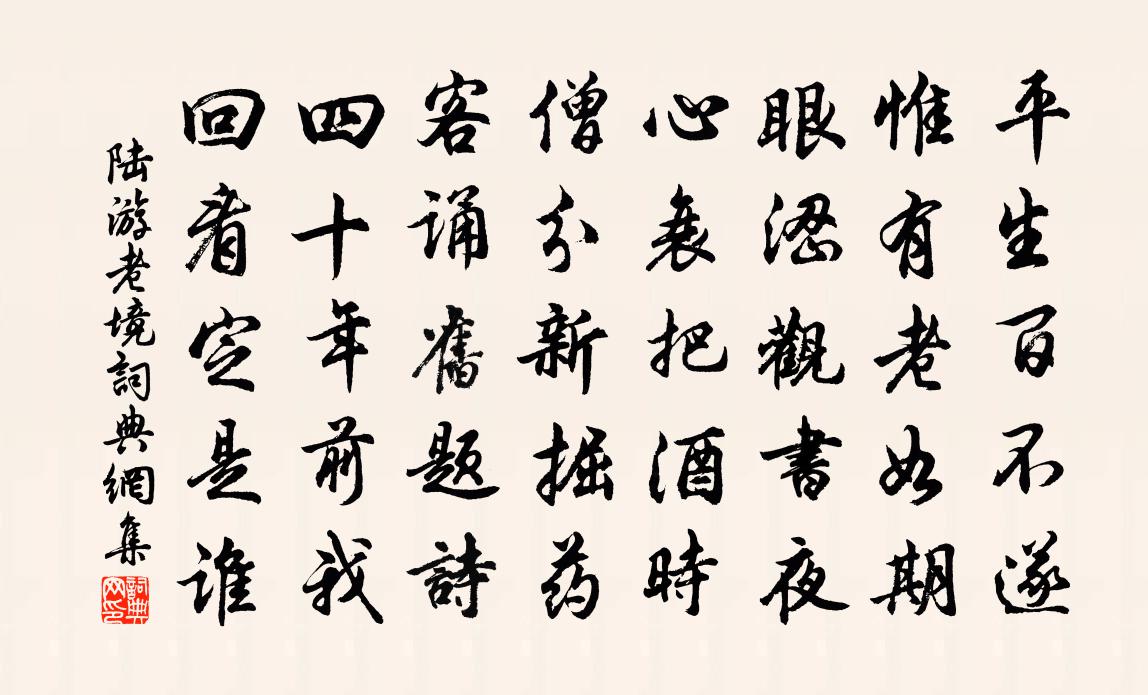 平生百不遂
惟有老如期
眼涩觀書夜
心衰把酒時
僧分新掘药
客诵舊题詩
四十年前我
回看定是谁
陆游老境詞典網集
詞典网印